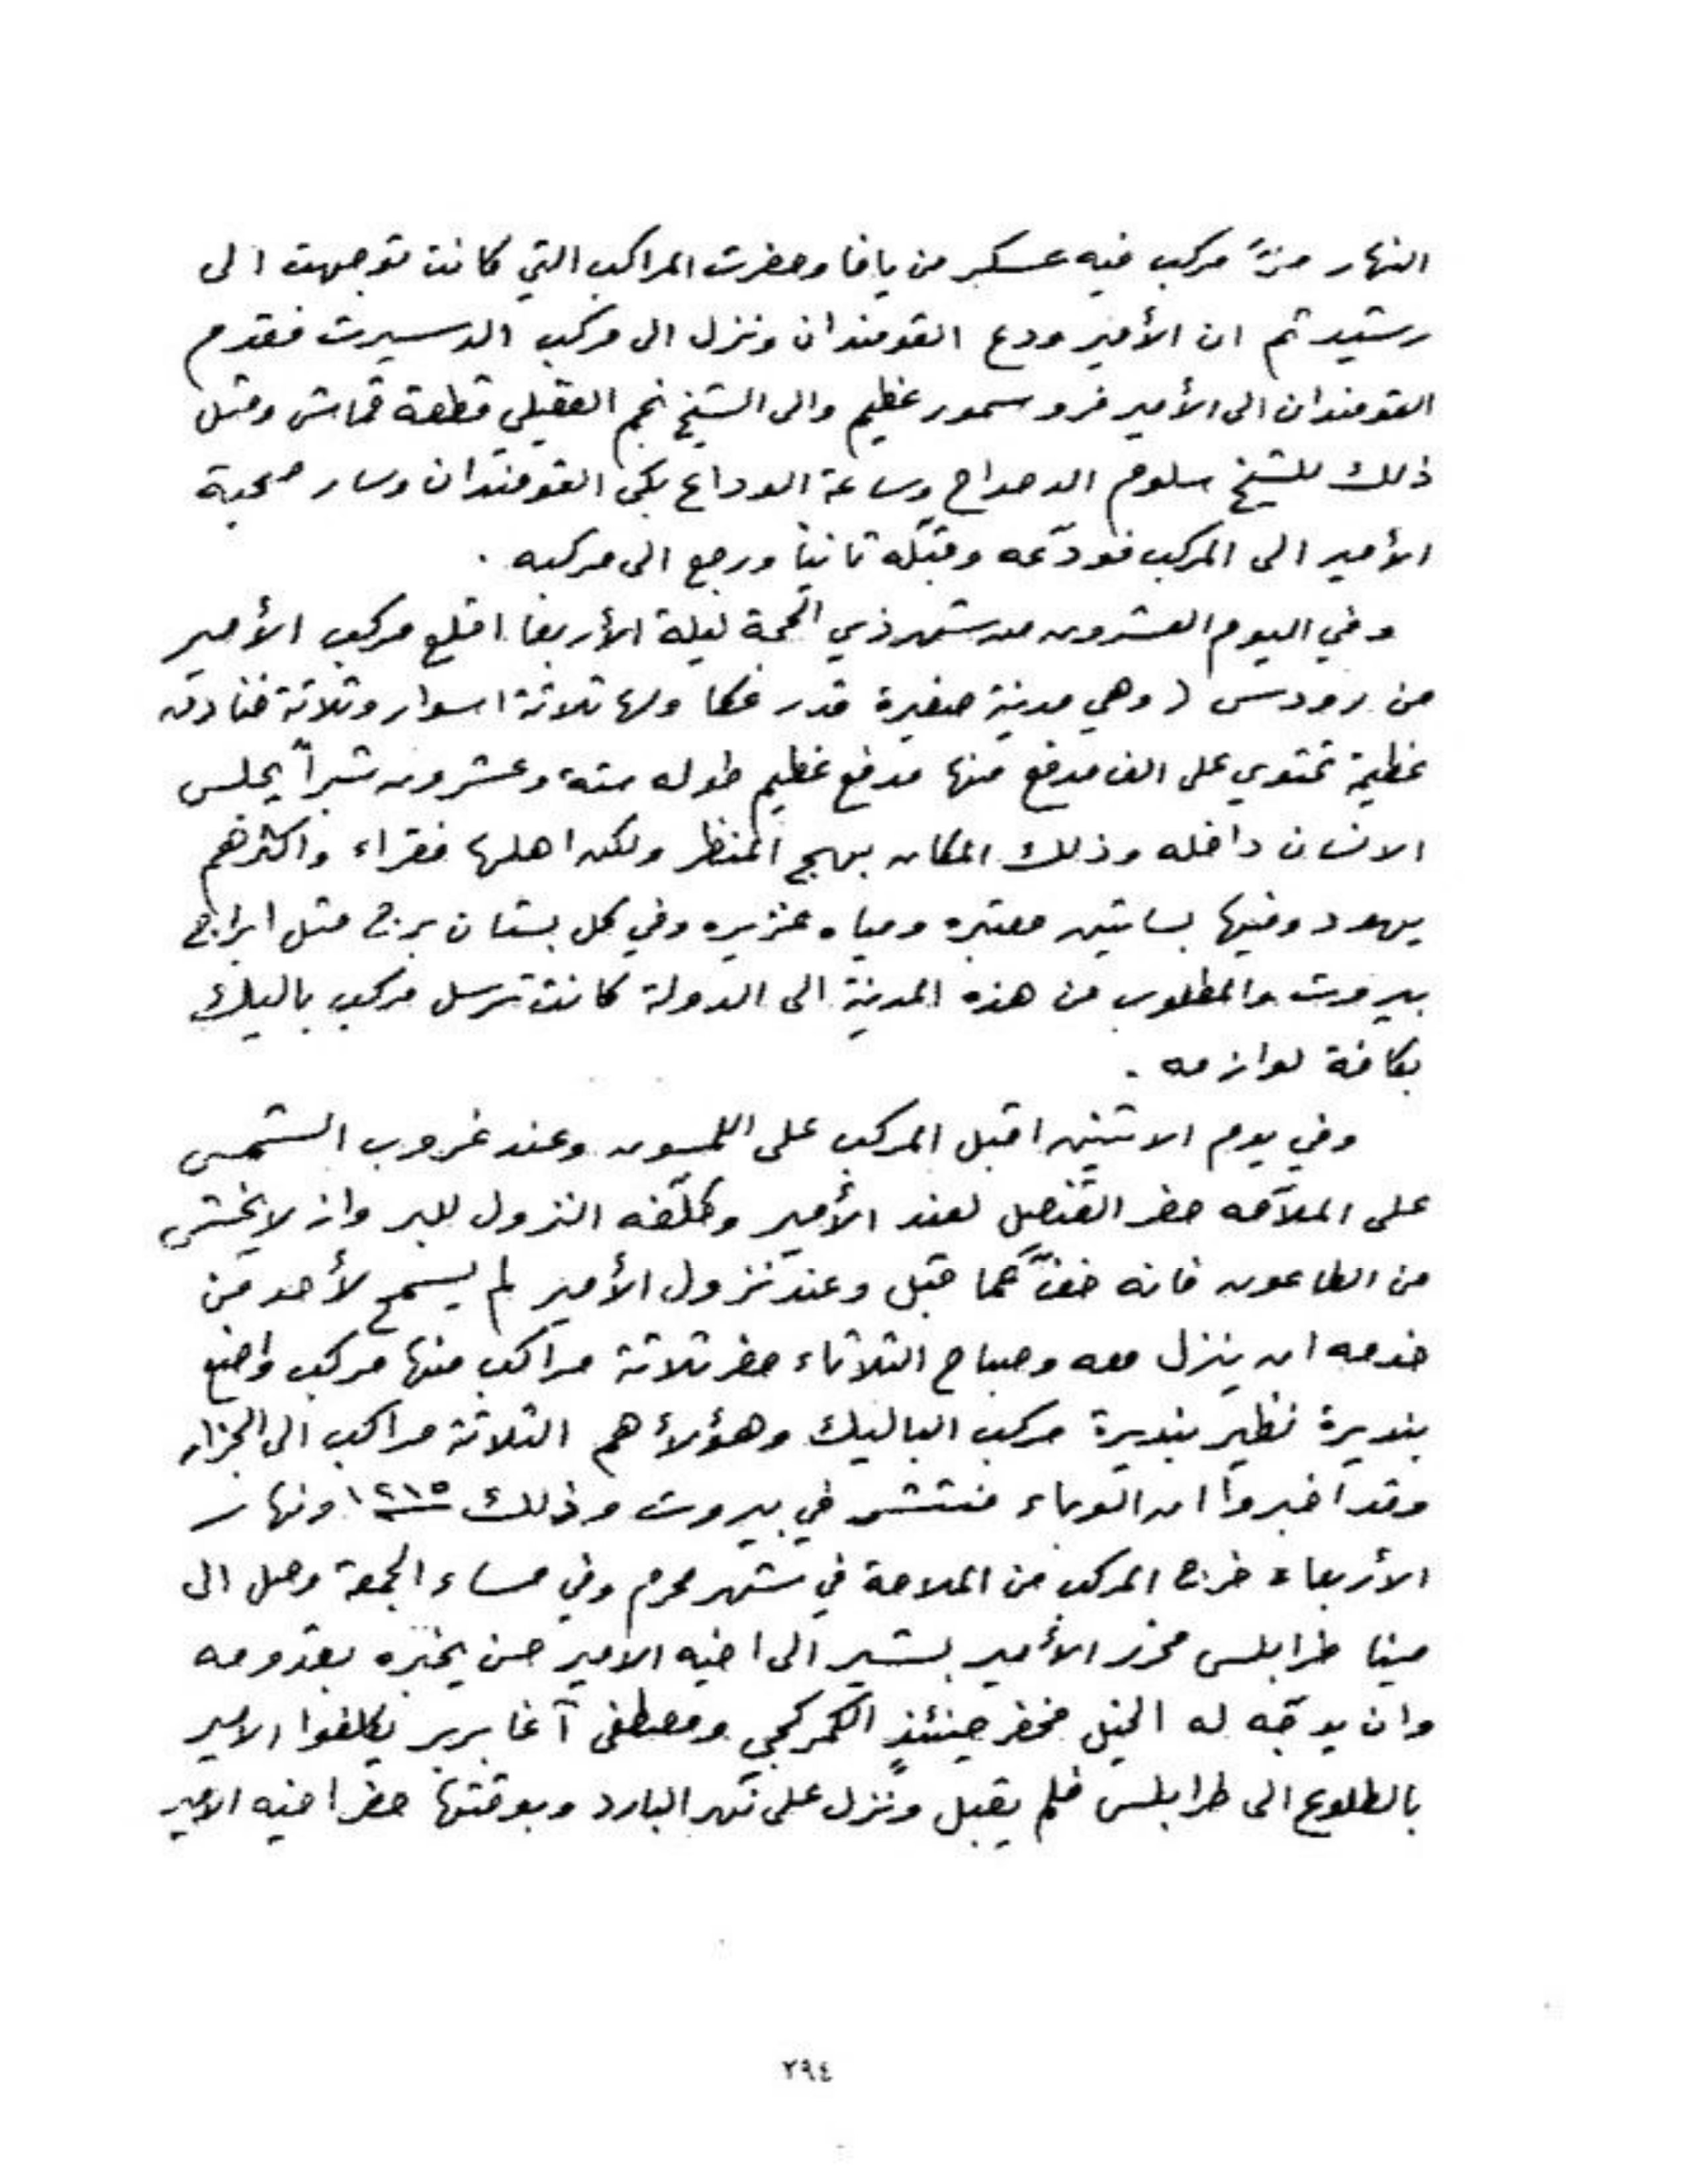 النهار مرّ مركب فيه عسكر من يافا وحضرت المراكب التي كانت توجهت الى
رشيد ثم ان الأمير ودع القومندان ونزل الى مركب الدسيرت فقدم
القومندان الى الأمير فرو سمور عظيم والى الشيخ نجم العقيلي قطعة قماش ومثل
ذلك للشيخ سلوم الدحداح وساعة الوداع بكى القومندان وسار صحبة
الأمير الى المركب فودّعه وقبّله ثانياً ورجع الى مركبه .
وفي اليوم العشرون من شهر ذي الحجة ليلة الأربعا اقلع مركب الأمير
من رودس ( وهي مدينة صغيرة قدر عكا ولها ثلاثة اسوار وثلاثة خنادق
عظيمة تحتوي على الف مدفع منها مدفع عظيم طوله ستة وعشرون شبراً يجلس
الانسان داخله وذلك المكان بهيج المنظر ولكن اهلها فقراء واكثرهم
يهود وفيها بساتين معتبره ومياه غزيره وفي كل بستان برج مثل ابراج
بيروت والمطلوب من هذه المدينة الى الدولة كانت ترسل مركب باليك
بكافة لوازمه .
وفي يوم الاثنين اقبل المركب على اللمسون وعند غروب الشمس
على الملاّحه حضر القنصل لعند الأمير وكلّفه النزول للبر وان لا يخشى
من الطاعون فانه خفّ عما قبل وعند نزول الأمير لم يسمح لأحد من
خدمه ان ينزل معه وصباح الثلاثاء حضر ثلاثة مراكب منها مركب واضع
بنديرة نظير بنديرة مركب الباليك وهؤلاء هم الثلاثة مراكب الى الجزار
وقد اخبروا ان الوباء منتشر في بيروت وذلك ١٢١٥ ونهار
الأربعاء خرج المركب من الملاحة في شهر محرم وفي مساء الجمعة وصل الى
مينا طرابلس فحرر الأمير بشير الى اخيه الامير حسن يخبره بقدومه
وان يوجّه له الخيل فحضر حينئذٍ الكمركجي ومصطفى آغا بربر يكلفوا الامير
بالطلوع الى طرابلس فلم يقبل ونزل على نهر البارد وبوقتها حضر اخيه الامير
٢٩٤